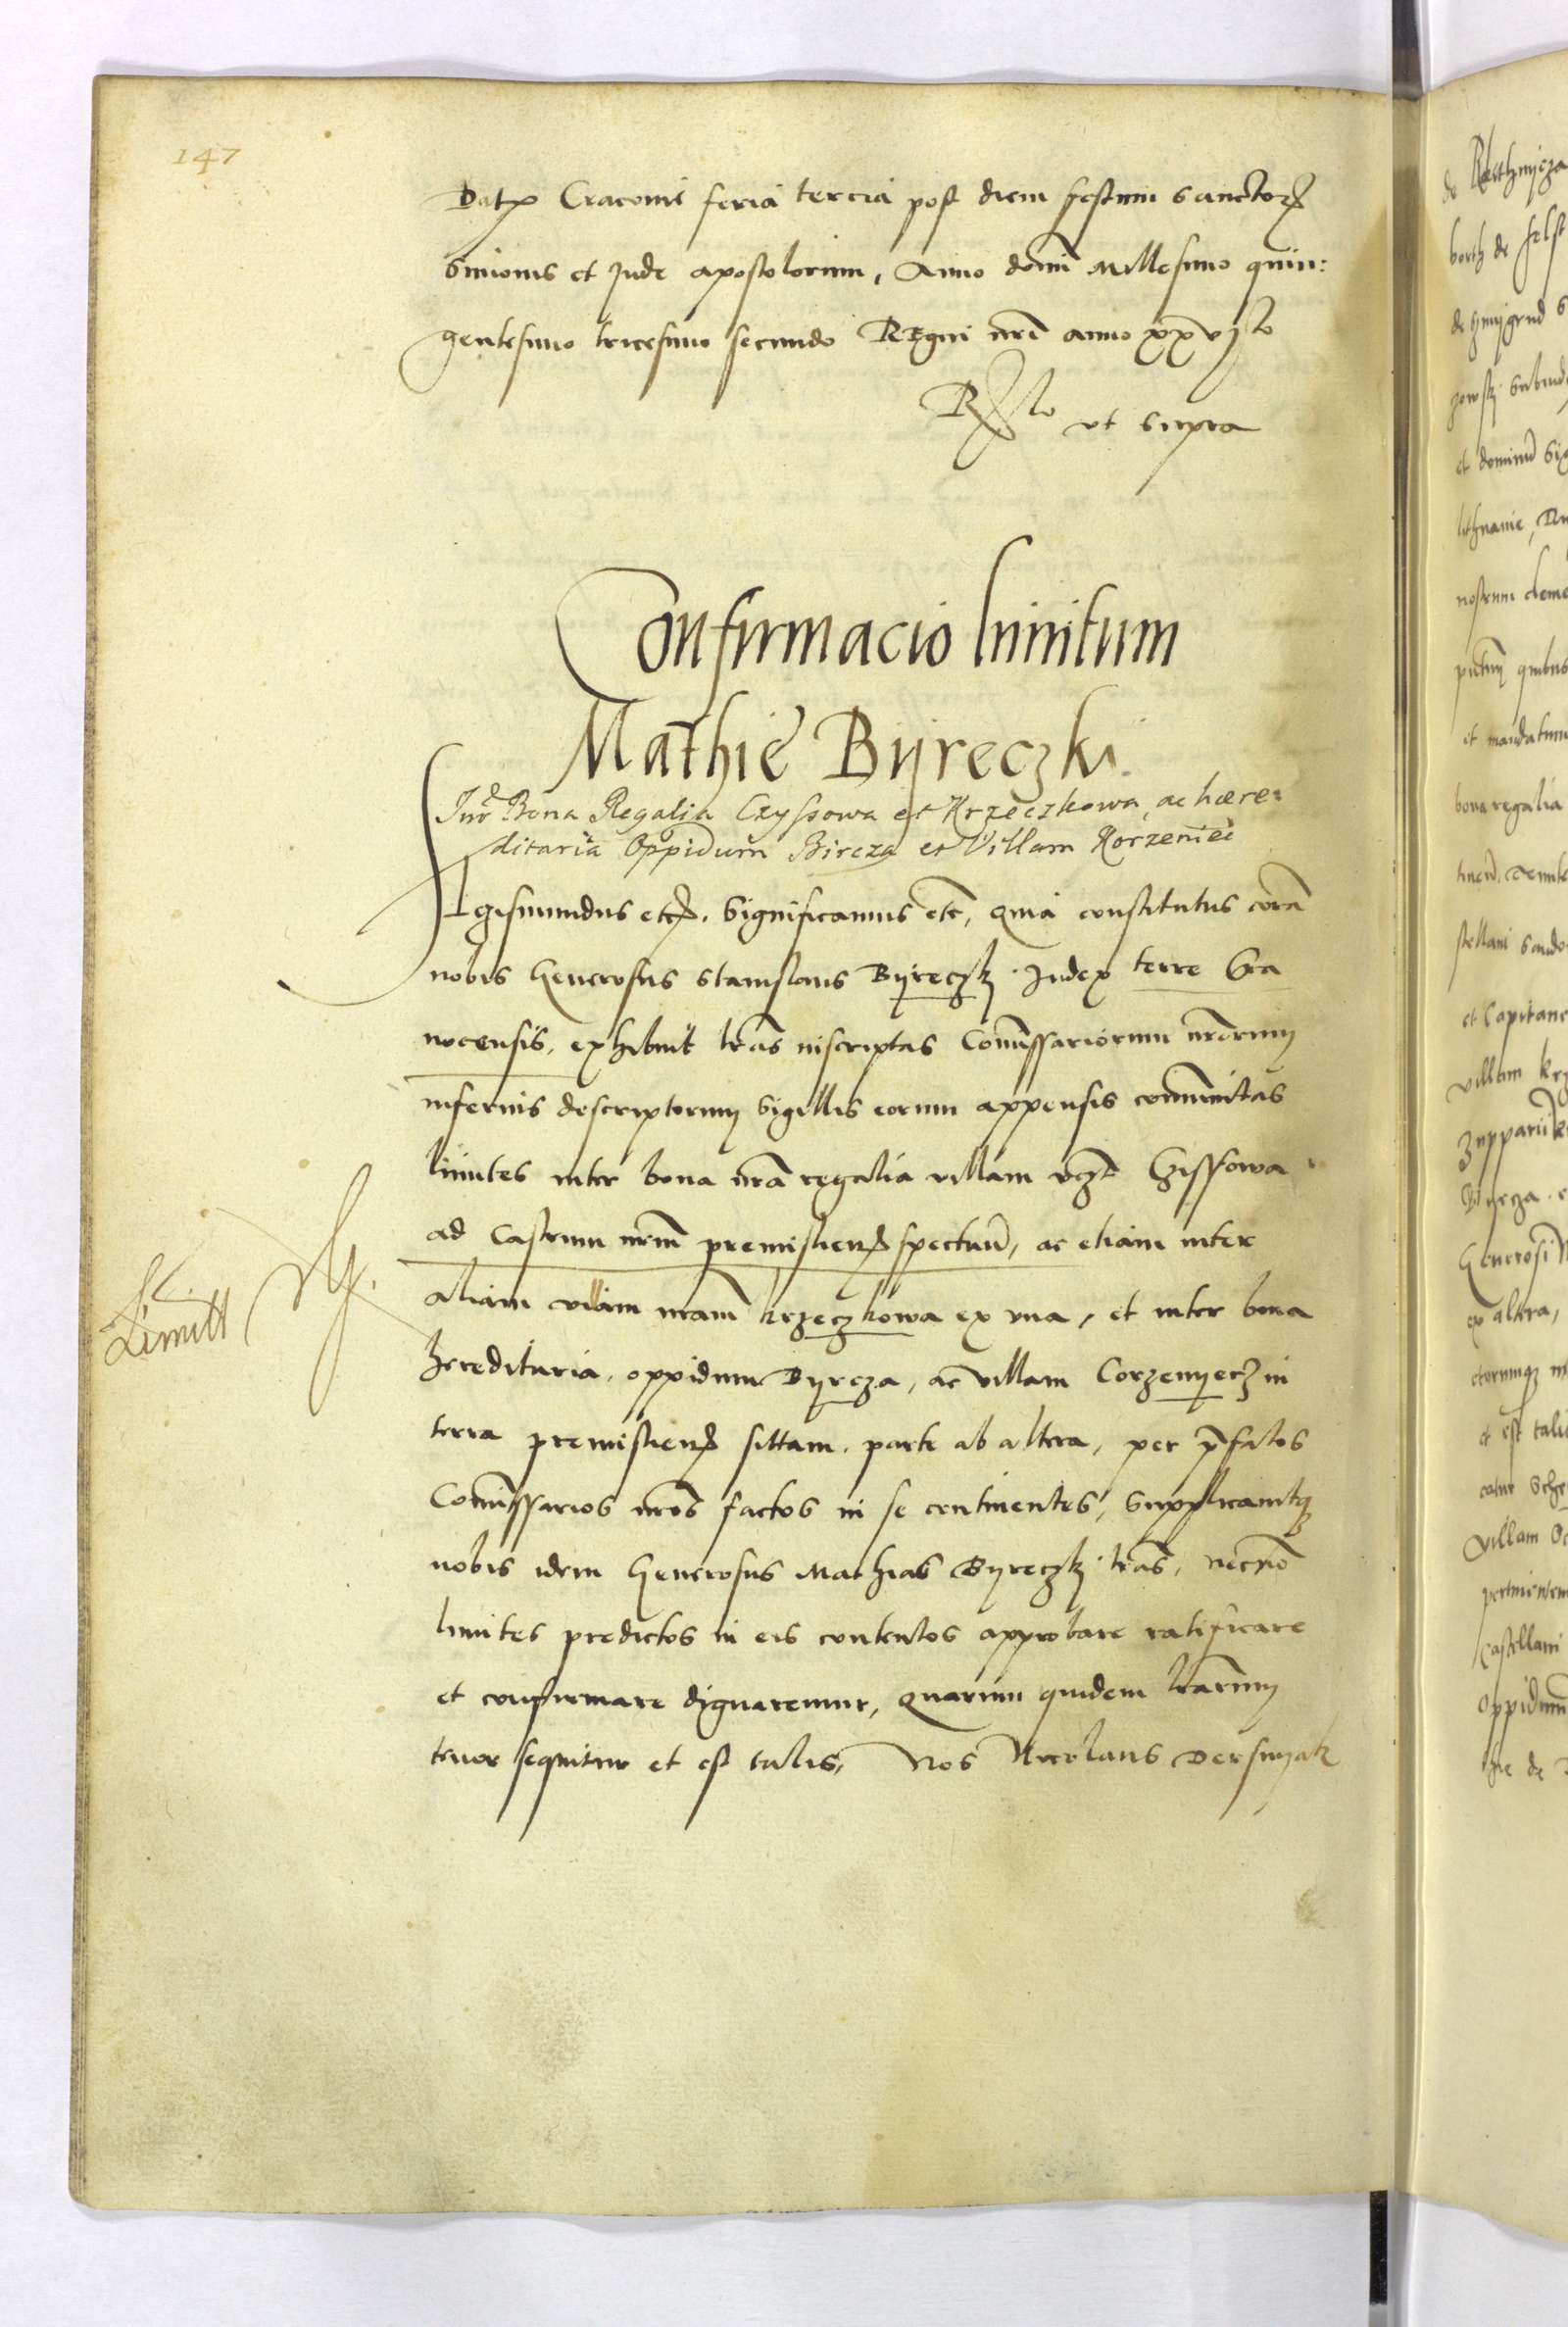 147
Datum Cracovie feria tercia post diem festum Sanctorum
Simonis et Jude apostolorum, Anno domini Millesimo quin:
gentesimo tricesimo secundo Regni nri anno xxvjto
Rlo ut supra
Confirmacio limitum
Mathie Byreczki.
Intr Bona Regalia Czyssowa et Krzeczkowa, ac hœre:
ditaria Oppidum Bircza et Villam Korzeniec
Sigismundus etc. Significamus etc, quia constitutus corā
nobis Generosus Stanislaus Byreczky Judex terre Sa
nocensis, exhibuit lrās inscriptas Comissariorum nrorum
inferius descriptorum sigillis eorum appensis communitas
limites inter bona nrā regalia villam vczt Czissowa
ad Castrum nrum premislien spectan, ac etiam inter
aliam villam nram krzeczkowa ex una, et inter bona
hereditaria, oppidum Byrcza, ac villam Corzenyecz in
terra premislien sittam. parte ab altera, per pfatos
Comissarios nros factos in se continentes, Supplicavitq
nobis idem Generosus Mathias Byreczky lrās, necnō
limites predictos in eis contentos approbare ratificare
et confirmare dignaremur, Quarum quidem lrārum
tenor sequitur et est talis, Nos Nicolaus Dersnyak
Limitt
de
borth de felst
et dominū Sig
lithuanie, Ru
nostrum cleme
quibus
et mandatum
bona regalia
stellani sando
et Capitane
villam krz
Byrcza
Generosi
ex altera,
et est talis
villam
Castellani
oppidum